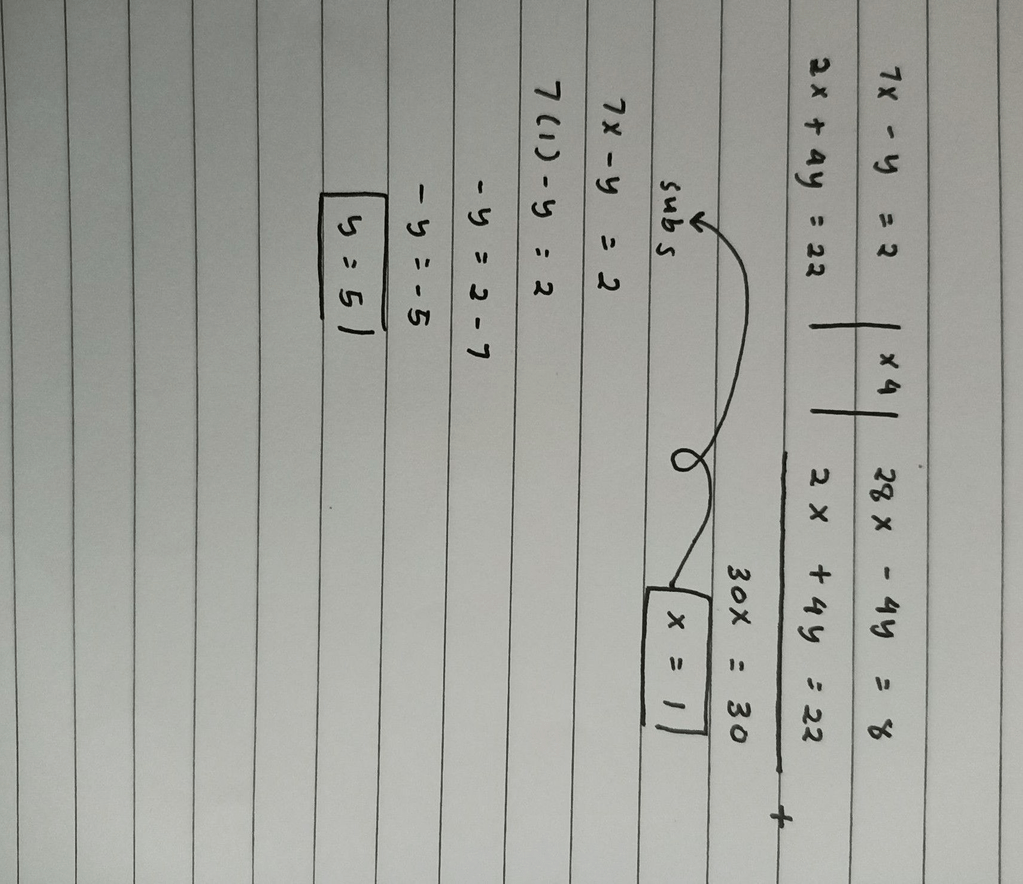 7x - y = 2 | x4 | 28x - 4y = 8
2x + 4y = 22 | | 2x + 4y = 22
+
30x = 30
x = 1
subs
7x - y = 2
7(1) - y = 2
- y = 2 - 7
- y = - 5
y = 5